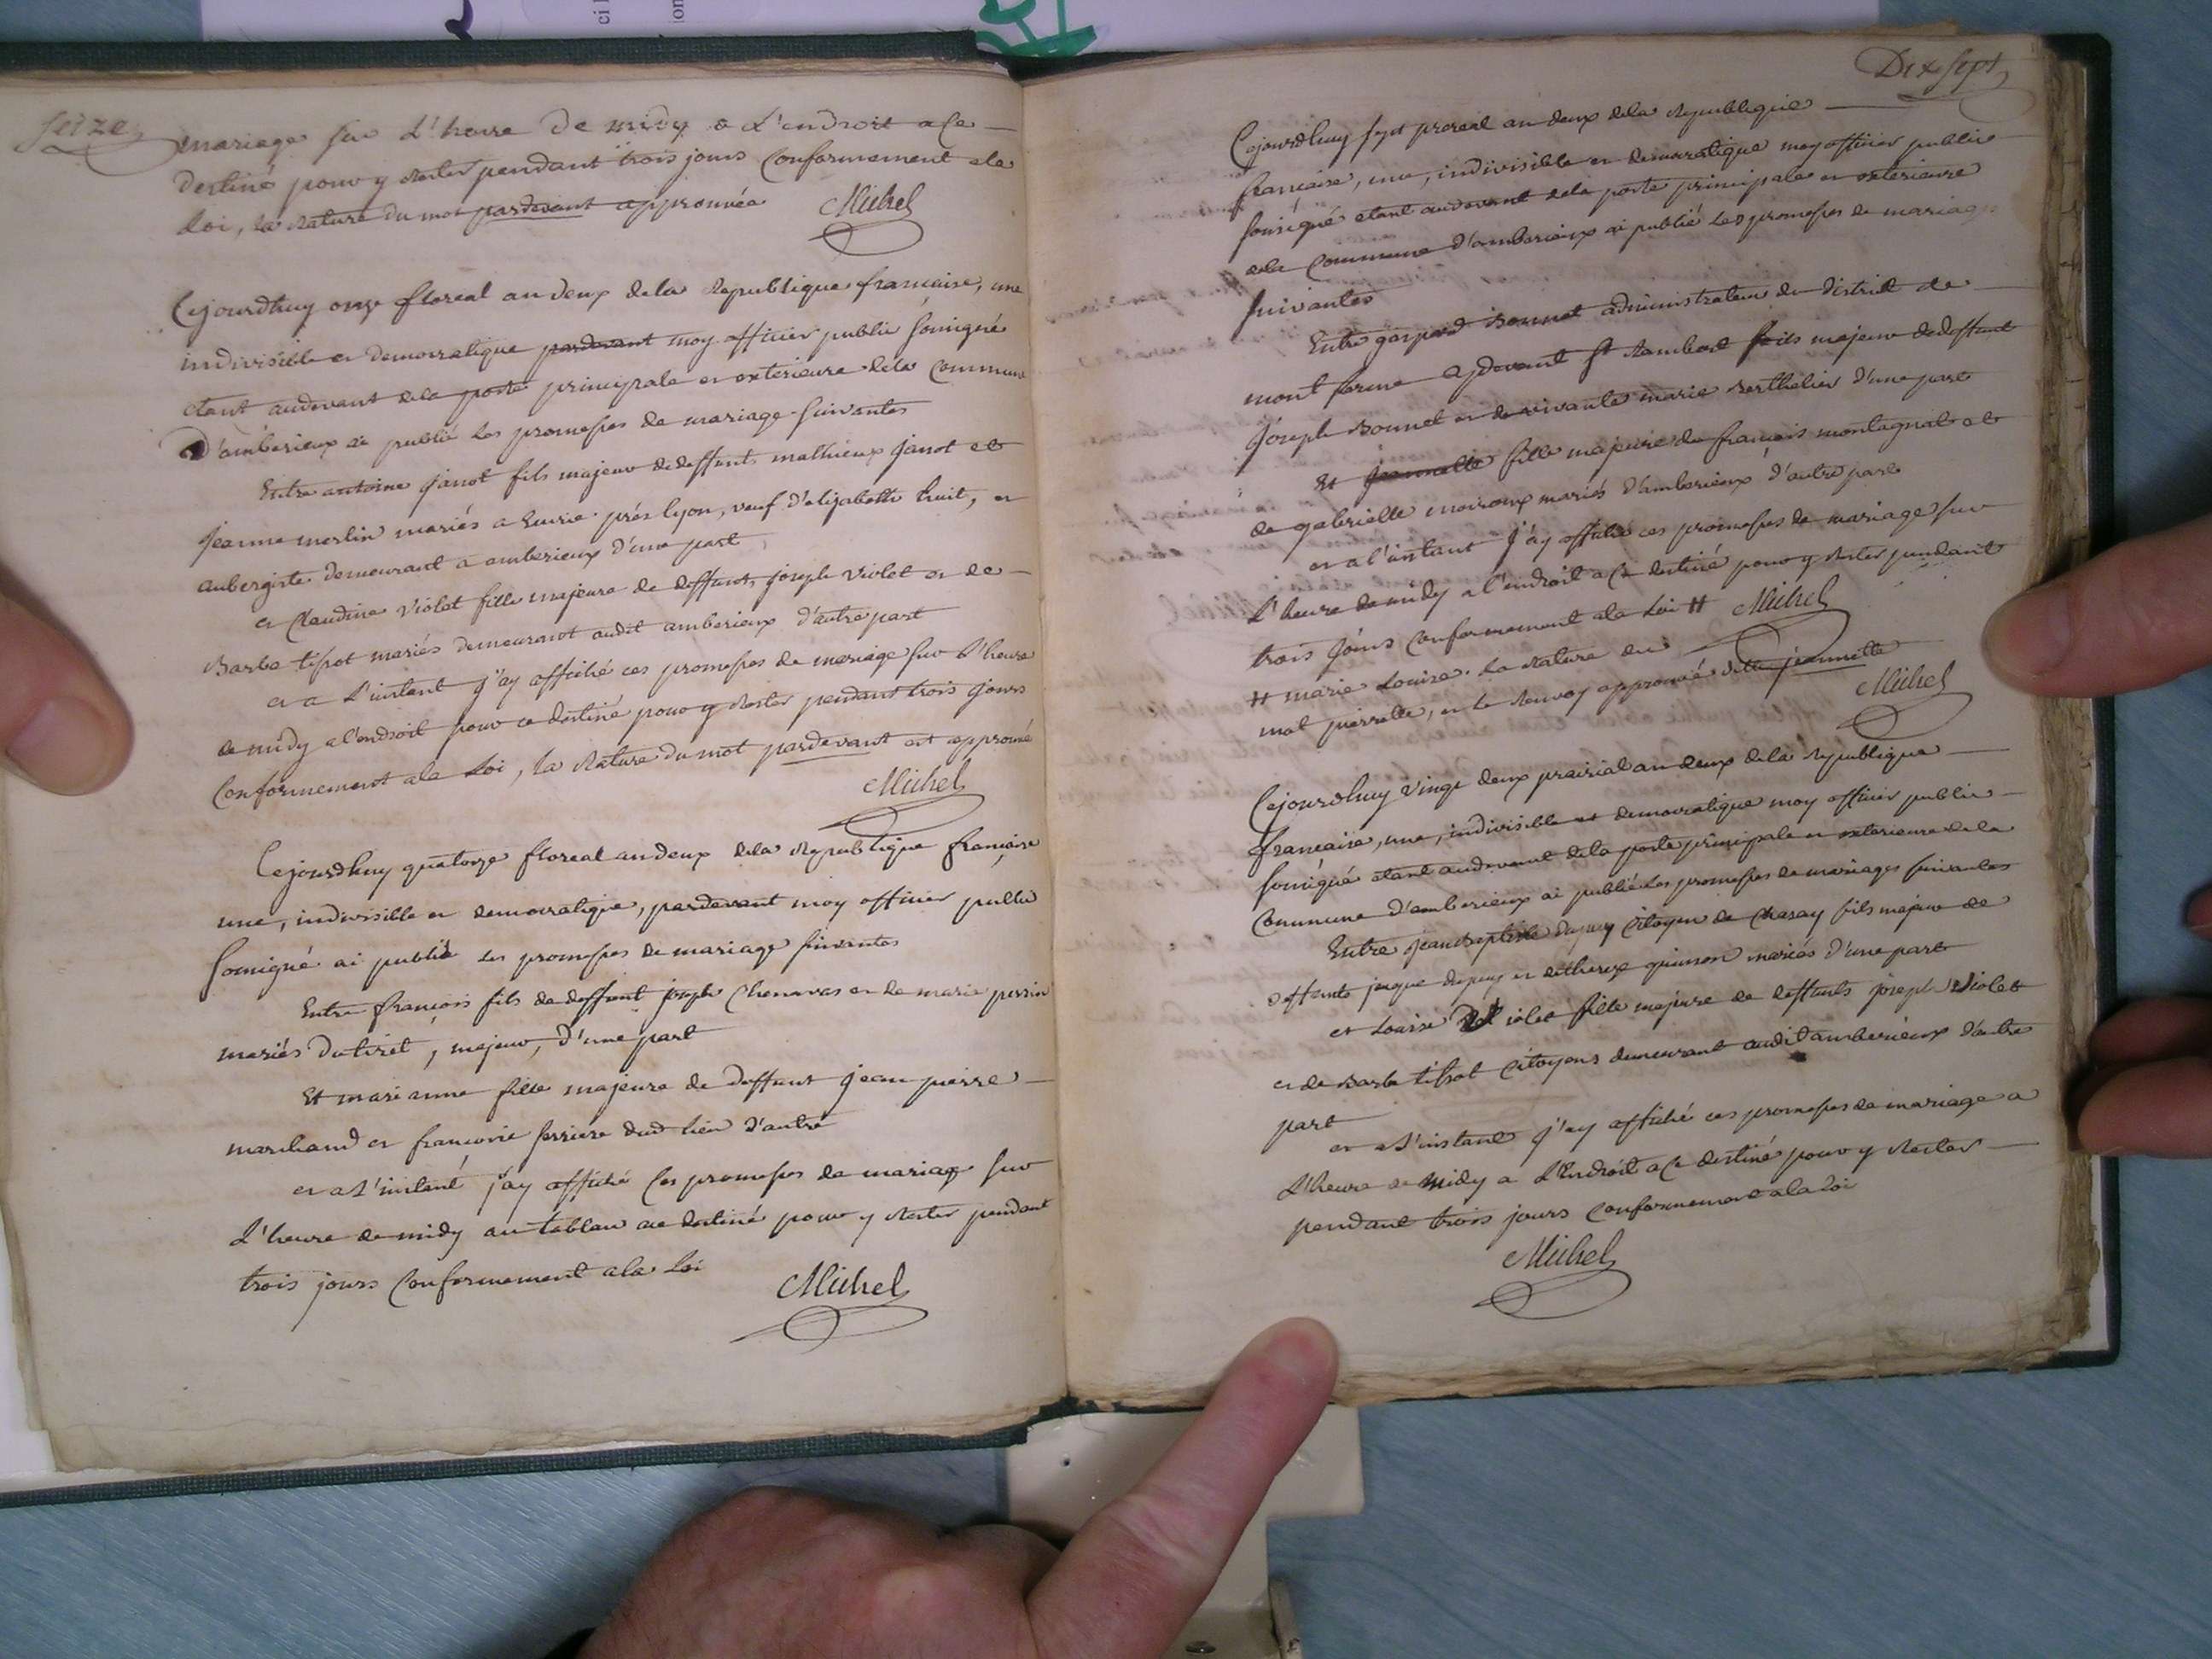 seize
mariage sur L'heure De midy a L'endroit a Ce
destiné pour y Rester pendant trois jours Conformement a la
Loi, la Rature du mot pardevant approuvée Michel
Cejourdhuy onze floreal an deux de la Republique francaise, une
indivisible et democratique pardevant moy officier public soussigné
etant audevant de la porte principale et exterieure de la Commune
D'amberieux ai publié les promesses de mariage suivantes
Entre antoine janot fils majeur de deffunts mathieux janot et
jeanne merlin mariés a près lyon, veuf d'elizabeth huit, et
aubergiste demeurant a amberieux d'une part
et Claudine Violet fille majeure de deffunts joseph Violet et de
Barbe tissot mariés demeurant audit amberieux d'autre part
et a L'instant j'ay affiché ces promesses de mariage sur L'heure
de midy a l'endroit pour ce destiné pour y Rester pendant trois jours
Conformement a la Loi, la Rature du mot pardevant est approuvé
Michel
Cejourdhuy quatorze floreal an deux de la Republique francaise
une, indivisible et democratique, pardevant moy officier public
soussigné ai publié les promesses de mariage suivantes
Entre françois fils de deffunt joseph Chenavas et de marie perrin
mariés Dutiret, majeur, d'une part
Et marianne fille majeure de deffunt jean pierre
marchand et françoise ferriere dud lieu d'autre
et a L'instant j'ay affiché Ces promesses de mariage sur
L'heure de midy au tableau a ce destiné pour y Rester pendant
trois jours Conformement a la Loi Michel
Dix sept
Cejourdhuy sept prereal an deux de la Republique
francaise, une, indivisible et democratique moy officier public
sousigné etant audevant de la porte principale et exterieure
de la Commune d'amberieux ai publié Les promesses de mariage
suivantes
Entre gaspard Bonnet administrateur du District de
mont ferme cydevant St Rambert fils majeur de deffunt
joseph Bonnet et de vivante marie Berthelier d'une part
Et jeannette fille majeure de francois montagnat et
de gabrielle moiroux mariés d'amberieux d'autre part
et a l'instant j'ay affiché ces promesses de mariage sur
L'heure de midy a l'endroit a Ce destiné pour y Rester pendant
trois jours Conformement a la Loi # Michel
# marie Louise. La Rature du
mot pierrette, et le Renvoy approuvé jeannette
Michel
Cejourdhuy Vingt deux prairial an deux de la Republique
francaise, une, indivisible et democratique moy officier public
sousigné etant audevant de la porte principale et exterieure de la
Commune d'amberieux ai publié les promesses de mariages suivantes
Entre jean baptiste dupuy Citoyen de Chazay fils majeur de
deffunts jacque dupuy et de therese mariés d'une part
et Louise Violet fille majeure de deffunts joseph Violet
et de Barbe tissot Citoyens demeurant audit amberieux d'autre
part
et a L'instant j'ay affiché ces promesses de mariage a
L'heure de midy a L'Endroit a Ce destiné pour y Rester
pendant trois jours Conformement a la Loi
Michel